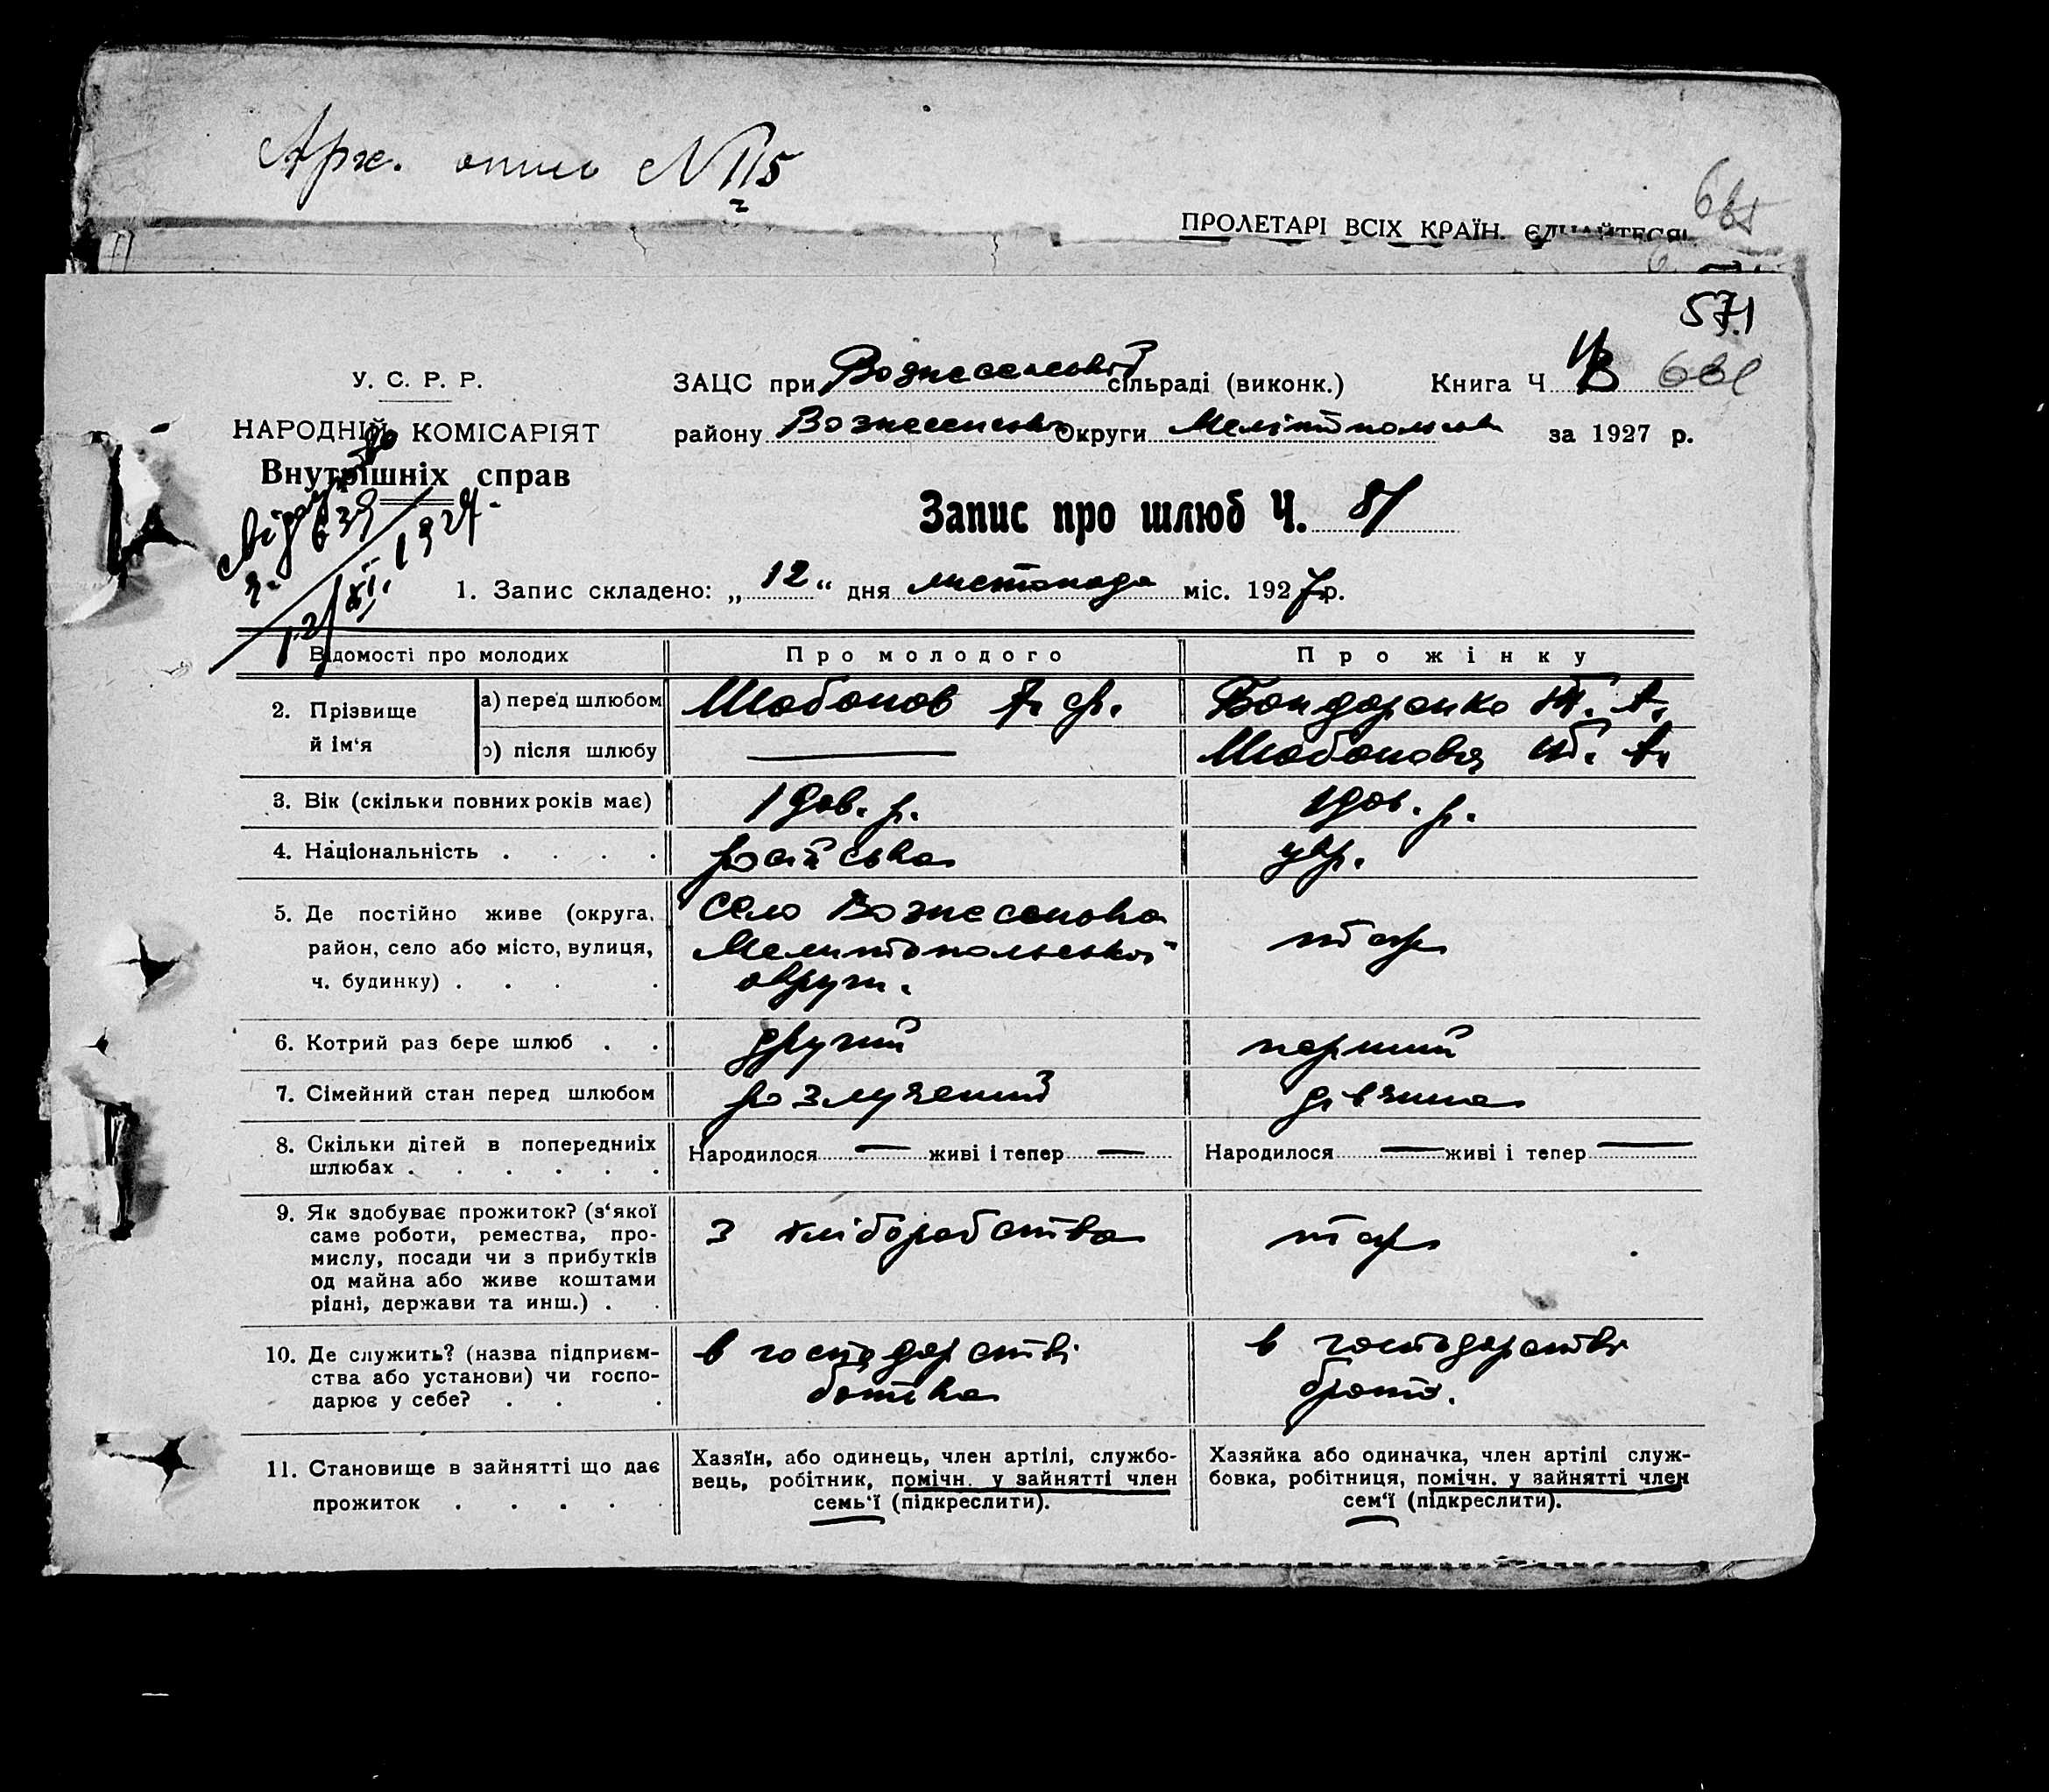 Арх. опись № 115
ПРОЛЕТАРІ ВСІХ КРАЇН, ЄДНАЙТЕСЯ!
571
У. С. Р. Р.
НАРОДНІЙ КОМІСАРІЯТ
Внутрішніх справ
ЗАЦС при Вознесенській сільраді (виконк.) Книга Ч
району Вознесенськ Округи Мелітпольськ за 1927 р.
Запис про шлюб Ч. 81
12/XI. 1927.
1. Запис складено: „ 12 “ дня листопада міс. 1927 р.
Відомості про молодих Про молодого Про жінку
2. Прізвище й ім‘я
а) перед шлюбом Шабанов А. Ф. Бондаренко Т. А.
б) після шлюбу — Шабанова Т. А.
3. Вік (скільки повних років має) 19 ов. р. 19 ов. р.
4. Національність . . . . російська укр.
5. Де постійно живе (округа, район, село або місто, вулиця, ч. будинку) . . . .
село Вознесенка
Мелитопольської
округи.
таж
6. Котрий раз бере шлюб . . другий перший
7. Сімейний стан перед шлюбом розлучений дівчина
8. Скільки дітей в попередніх шлюбах . . . . . .
Народилося — живі і тепер —
Народилося — живі і тепер —
9. Як здобуває прожиток? (з‘якої
саме роботи, ремества, про-
мислу, посади чи з прибутків
од майна або живе коштами
рідні, держави та инш.) . .
з хліборобства
таж
10. Де служить? (назва підприєм-
ства або установи) чи госпо-
дарює у себе? . . .
в господарстві
батька
в господарстві
брата.
11. Становище в зайнятті що дає
прожиток . . . . .
Хазяїн, або одинець, член артілі, службо-
вець, робітник, помічн. у зайнятті член
семь‘ї (підкреслити).
Хазяйка або одиначка, член артілі служ-
бовка, робітниця, помічн. у зайнятті член
сем‘ї (підкреслити).